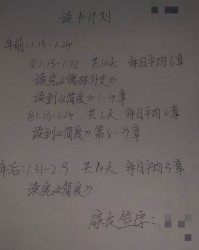 读书计划
年前:1.13-1.24
①1.13-1.22 共10天 每日平均6章
读完《儒林外史》
读到《简爱》1-4章
②1.23-1.24 共2天 每日平均2章
读到《简爱》第5-9章
年后:1.31-2.9 共10天 每日平均3章
读完《简爱》
家长签字: